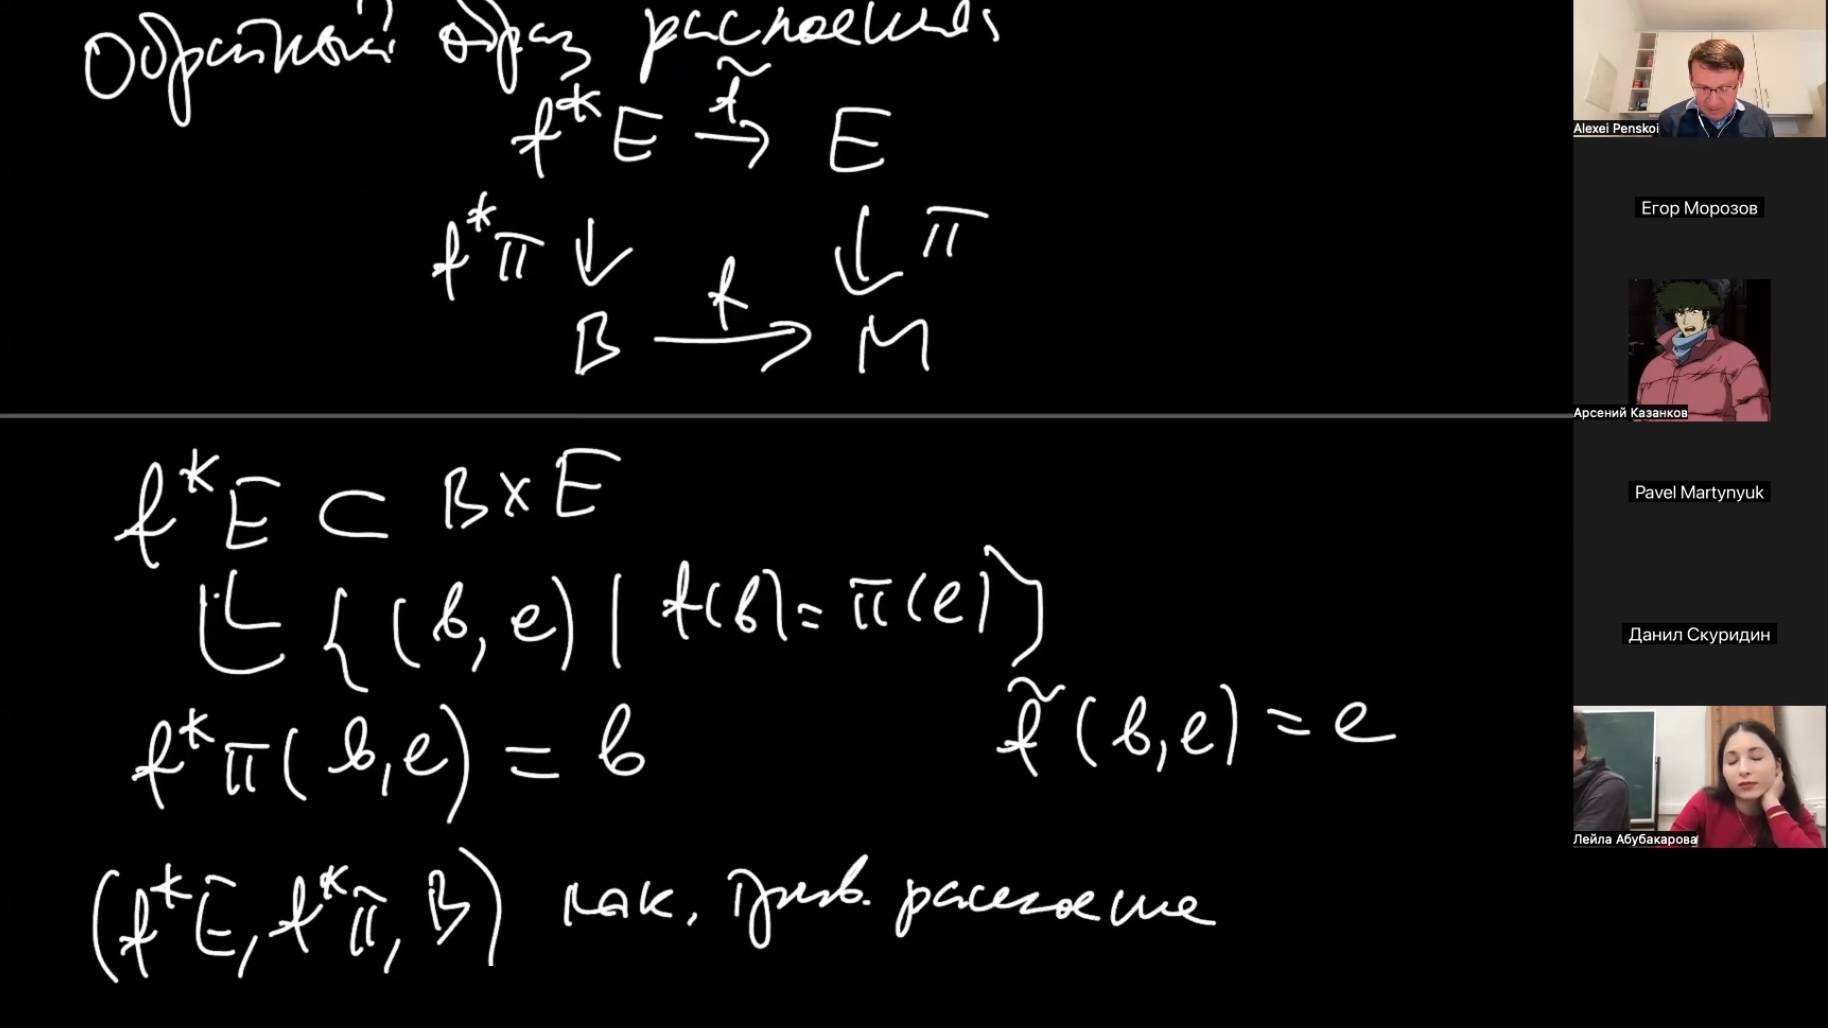 Обратный образ расслоения
f*E → E
f̃
f*π ↓ ↓ π
B → M
f
f*E ⊂ B × E
{(b, e) | f(b) = π(e)}
f*π(b, e) = b
f̃(b, e) = e
(f*E, f*π, B) расслоение
Alexei Penskoi
Егор Морозов
Арсений Казанков
Pavel Martynyuk
Данил Скуридин
Лейла Абубакарова